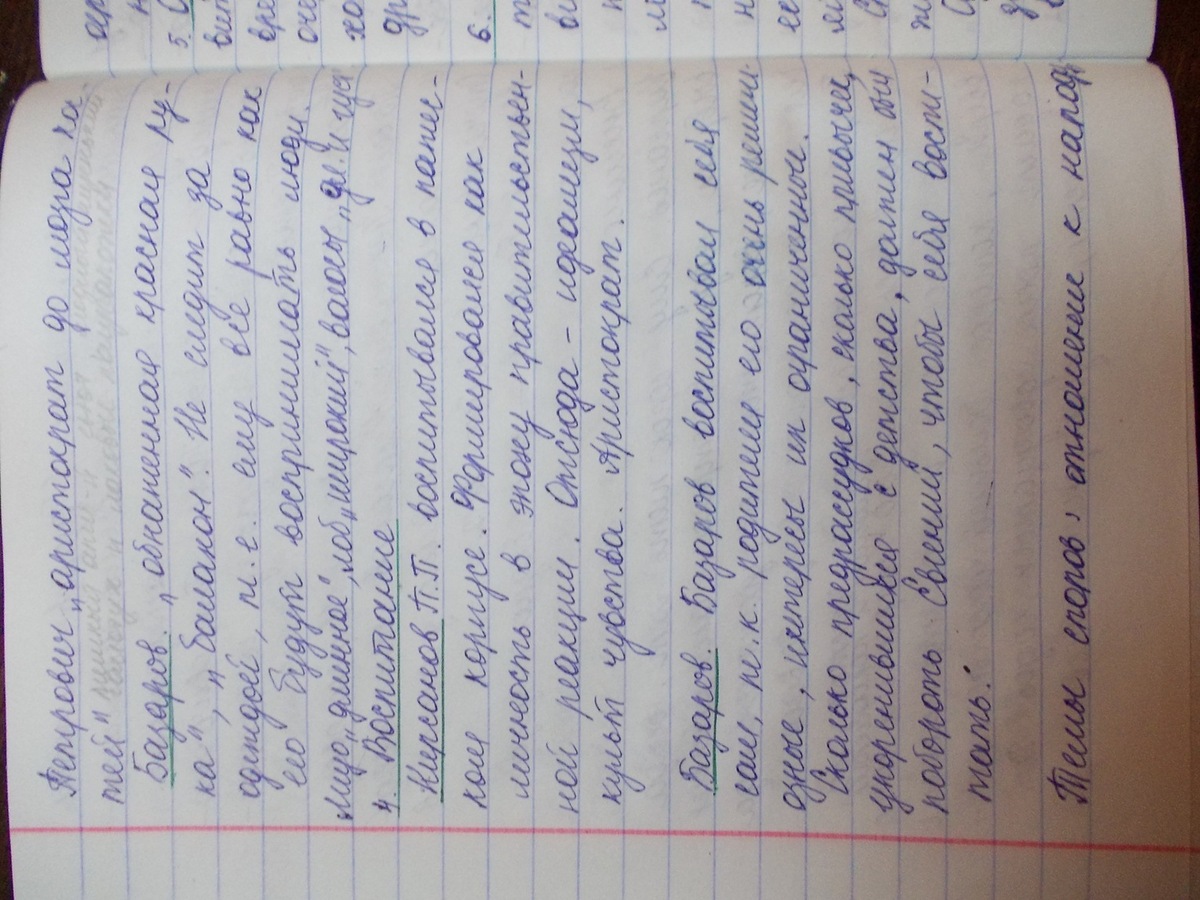 Петрович „аристократ до мозга ко-
тей"
Базаров. „обнаженная красная ру-
ка", „балахон". Не следит за
одеждой, т.е. ему всё равно как
его будут воспринимать люди.
„лицо „длинное", лоб „широкий", волосы „дл. и густ
4. Воспитание
Кирсанов П.П. воспитывался в пажес-
ком корпусе. Формировался как
личность в эпоху правительствен-
ной реакции. Отсюда - идеалы,
культ чувства. Аристократ.
Базаров. Базаров воспитывал себя
сам, т.к. родители его очень
одные, интересы их ограниченные.
Сколько предрассудков, сколько привычек,
укоренившихся с детства, должен был
побороть Евгений, чтобы себя воспи-
тать.
Темы споров: отношение к народу
5.
6.